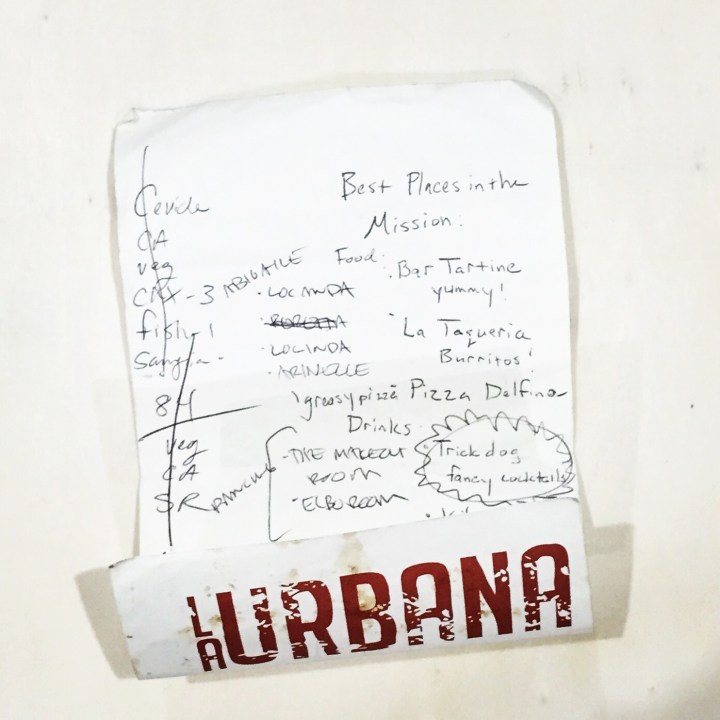 Best Places in the
Mission:
Food:
Bar Tartine
yummy!
La Taqueria
Burritos!
LOCANDA
LOLINDA
ARINELLE
greasy pizza
Pizza Delfina
Drinks
THE MAKEOUT
ROOM
ELBO ROOM
Trick dog
fancy cocktails
DANCING
CA
veg
- 3
fish-1
Sangria-
84
veg
CA
SR
LA URBANA